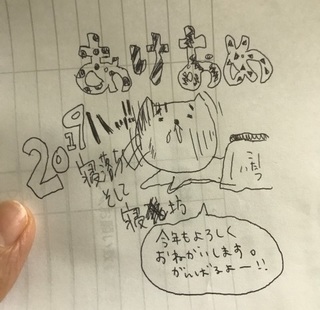 あけおめ
2019
ハッ
寝落ち
そして
寝坊
今年もよろしく
おねがいします。
がんばるよー!!